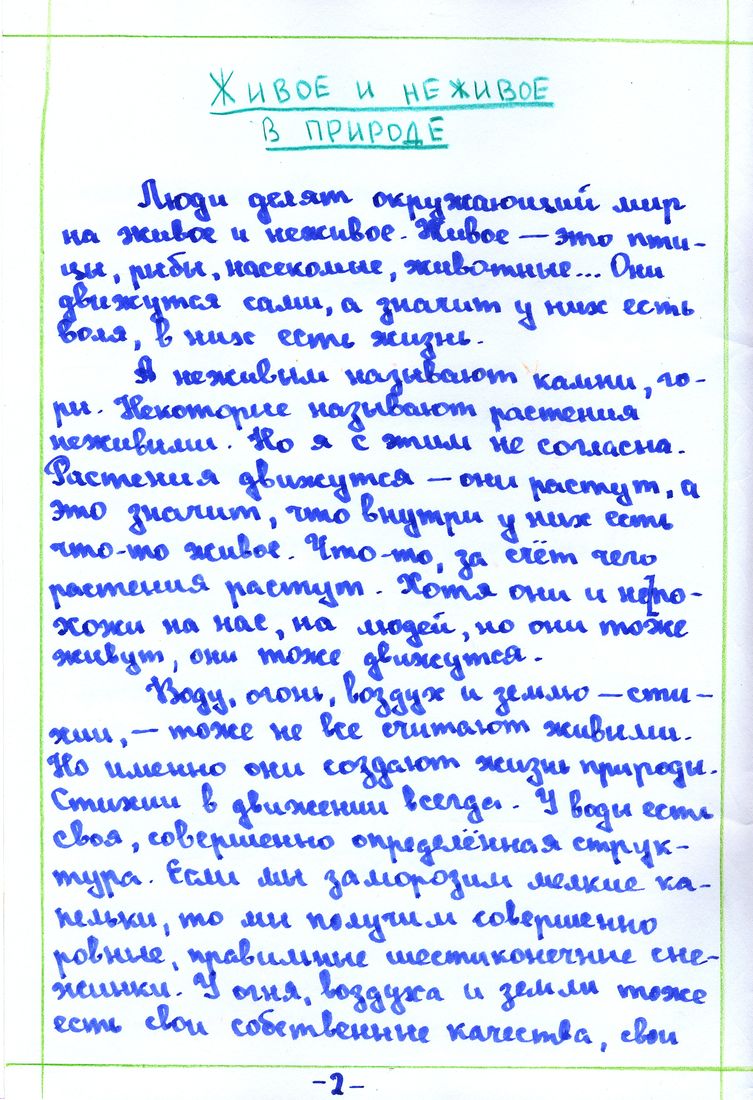 ЖИВОЕ И НЕЖИВОЕ
В ПРИРОДЕ
Люди делят окружающий мир
на живое и неживое. Живое — это пти-
цы, рыбы, насекомые, животные... Они
движутся сами, а значит у них есть
воля, в них есть жизнь.
А неживым называют камни, го-
ры. Некоторые называют растения
неживыми. Но я с этим не согласна.
Растения движутся — они растут, а
это значит, что внутри у них есть
что-то живое. Что-то, за счёт чего
растения растут. Хотя они и непо-
хожи на нас, на людей, но они тоже
живут, они тоже движутся.
Воду, огонь, воздух и землю — сти-
хии, — тоже не все считают живыми.
Но именно они создают жизнь природы.
Стихии в движении всегда. У воды есть
своя, совершенно определённая струк-
тура. Если мы заморозим мелкие ка-
пельки, то мы получим совершенно
ровные, правильные шестиконечные сне-
жинки. У огня, воздуха и земли тоже
есть свои собственные качества, свои
-2-